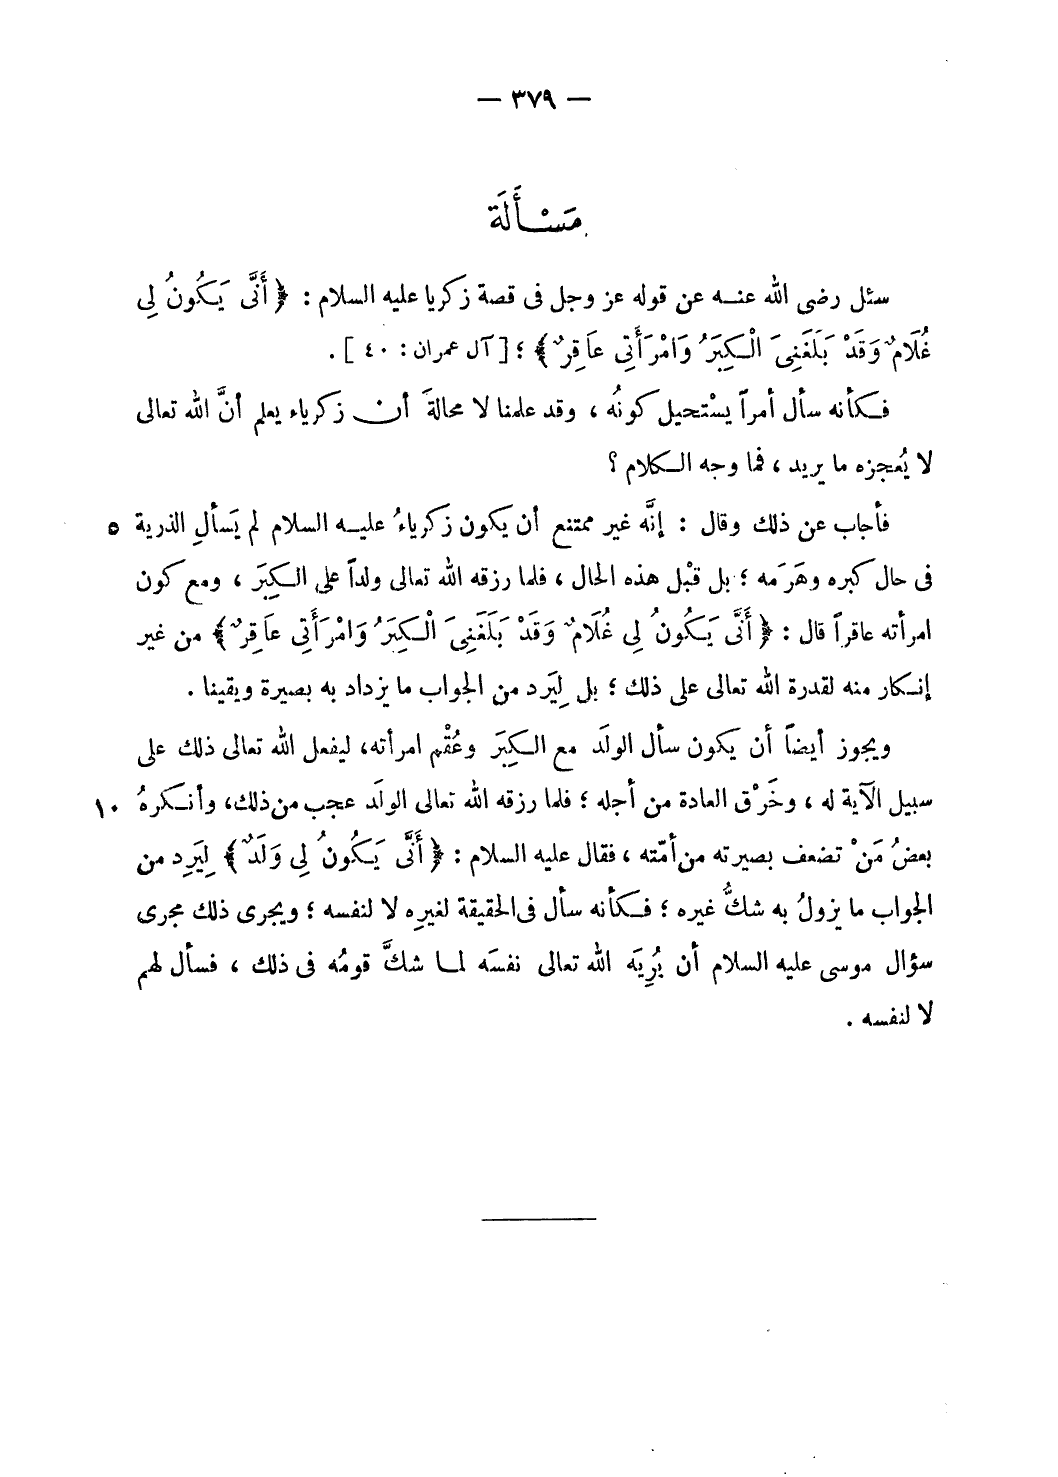 — ٣٧٩ —
مَسْـأَلَة
سئل رضى الله عنـه عن قوله عز وجل فى قصة زكريا عليه السلام : ﴿ أَنَّى يَكُونُ لِى
غُلَامٌ وَقَدْ بَلَغَنِىَ الْكِبَرُ وَامْرَأَتِى عَاقِرٌ ﴾ ؛ [ آل عمران : ٤٠ ] .
فـكأنه سأل أمراً يسْتحيل كونُه ، وقد علمنا لا محالةَ أن زكرياء يعلم أنَّ الله تعالى
لا يُعجزه ما يريد ، فما وجه الـكلام ؟
فأجاب عن ذلك وقال : إنَّه غير ممتنع أن يكون زكرياءُ عليـه السلام لم يَسألِ الذرية ٥
فى حال كبره وهَرَمه ؛ بل قبْل هذه الحال ، فلما رزقه الله تعالى ولداً على الـكِبَر ، ومع كون
امرأته عاقراً قال : ﴿ أَنَّى يَكُونُ لِى غُلَامٌ وَقَدْ بَلَغَنِىَ الْكِبَرُ وَامْرَأَتِى عَاقِرٌ ﴾ من غير
إنـكار منه لقدرة الله تعالى على ذلك ؛ بل لِيَرد من الجواب ما يزداد به بصيرة ويقينا .
ويجوز أيضاً أن يكون سأل الولَد مع الـكِبَر وعُقْم امرأته، ليفعل الله تعالى ذلك على
سبيل الآية له ، وخَرْق العادة من أجله ؛ فلما رزقه الله تعالى الولَد عجب من ذلك، وأنـكرهُ ١٠
بعضُ مَنْ تضعف بصيرته من أمّته ، فقال عليه السلام : ﴿ أَنَّى يَكُونُ لِى وَلَدٌ ﴾ لِيَرِد من
الجواب ما يزولُ به شكُّ غيره ؛ فـكأنه سأل فى الحقيقة لغيرِه لا لنفسه ؛ ويجرى ذلك مجرى
سؤال موسى عليه السلام أن يُرِيَه الله تعالى نفسَه لمـا شكَّ قومُه فى ذلك ، فسأل لهم
لا لنفسه .